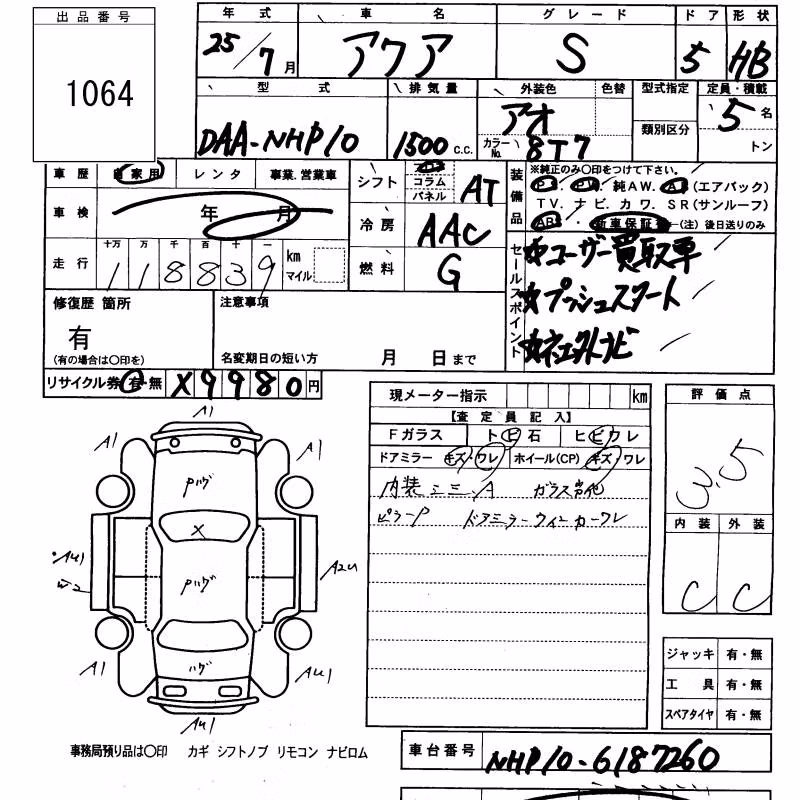 出品番号
1064
年式 車名 グレード ドア 形状
25/7月 アクア S 5 HB
型式 排気量 外装色 色替 型式指定 定員・積載
DAA-NHP10 1500 c.c. アオ カラーNo. 8T7 類別区分 5名 トン
車歴 自家用 レンタ 事業.営業車
車検 年 月
走行 十万 万 千 百 十 一
118839 km マイル
シフト コラム パネル AT
冷房 AAC
燃料 G
装備品
※純正のみ〇印をつけて下さい。
PS. PW. 純AW. AB(エアバック)
TV. ナビ. カワ. SR(サンルーフ)
ABS ・ 新車保証書 (注) 後日送りのみ
セールスポイント
☆ユーザー買取車
☆プッシュスタート
☆ネエクストナビ
修復歴 箇所 注意事項
有
(有の場合は〇印を) 名変期日の短い方 月 日まで
リサイクル券 有・無 ×9980円
現メーター指示 km
【査定員記入】
Fガラス トビ石 ヒビワレ
ドアミラー キズ・ワレ ホイール(CP) キズ・ワレ
内装 シミ.A
ピラーP ドアミラーウィンカーワレ
評価点
3.5
内装 外装
C C
ジャッキ 有・無
工具 有・無
スペアタイヤ 有・無
A1
A1 A1
Pハゲ
X
AU1 A2U
Pハゲ
ハゲ
A1 AU1
AU1
事務局預り品は〇印 カギ シフトノブ リモコン ナビロム
車台番号 NHP10-6187260